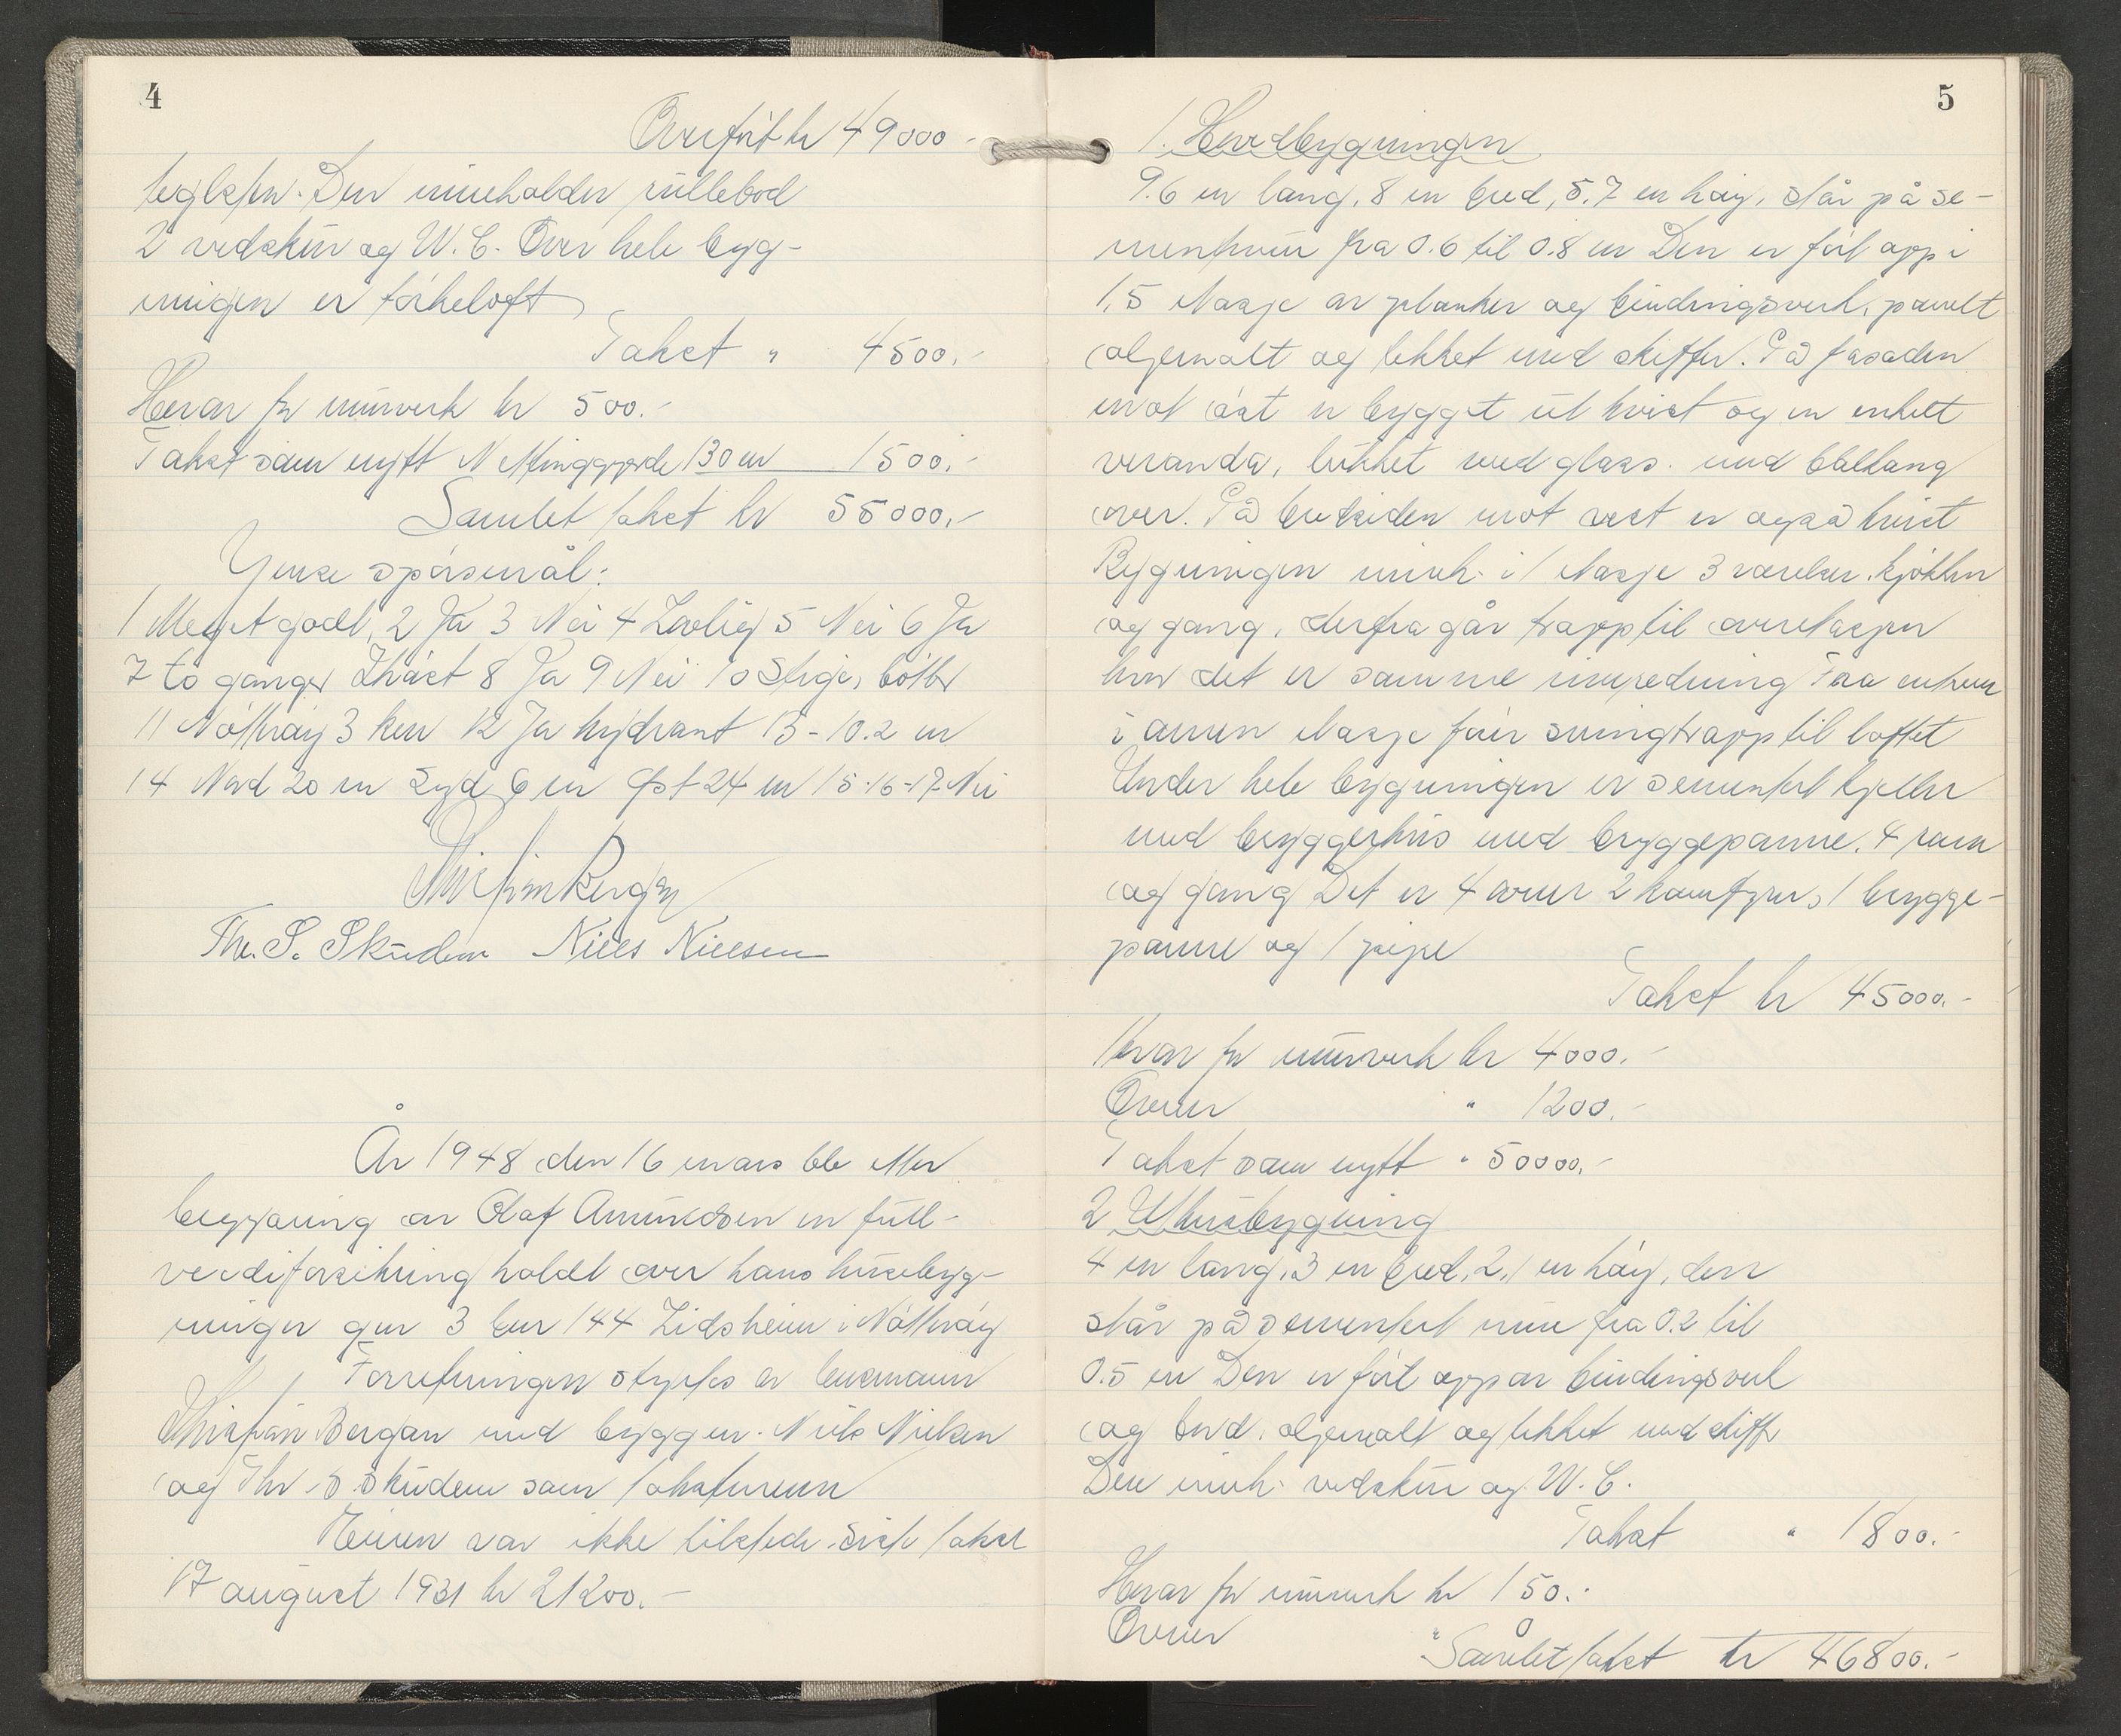 4
Overført kr 49000 -
teglsten. Den inneholder rullebod
2 vedskur og W.C. Over hele byg-
ningen er törkeloft
Takst " 4500.-
Herav for murverk kr 500.-
Takst som nytt N Mingjerde 130 m 1500.-
Samlet takst kr 55000.-
Ymse spörsmål:
1 Meget godt, 2 Ja 3 Nei 4 Lovlig 5 Nei 6 Ja
7 to ganger Ihöst 8 Ja 9 Nei 10 Stige, bötter
11 Nötteröy 3 km 12 Ja hydrant 13 - 10.2 m
14 Nord 20 m Syd 6 m Øst 24 m 15-16-17 Nei
Kristian Bergan
Thr. S. Skudem Niels Nielsen
År 1948 den 16 mars ble etter
begjæring av Olaf Amundsen en full-
verdiforsikring holdt over hans husebyg-
ninger gnr 3 bnr 144 Lidsheim i Nötteröy
Forretningen styrtes av lensmann
Kristian Bergan med byggm. Niels Nielsen
og Thr S. Skudem som takstmenn
Eieren var ikke tilstede. Siste takst
17 august 1931 kr 21200.-
5
1. Hovedbygningen
9.6 m lang, 8 m bred, 5.7 m höy, står på se-
mentmur fra 0.6 til 0.8 m Den er fört opp i
1,5 etasje av planker og bindingsverk, panelt
oljemalt og tekket med skiffer. På fasaden
mot öst er bygget ut kvist og en enkelt
veranda, lukket med glass. med balkong
over. På baksiden mot vest er også kvist
Bygningen inneh. i 1 etasje 3 værelser, kjökken
og gang, derfra går trapp til overetasjen
hvor det er samme innredning Fra entreen
i annen etasje förer svingtrapp til loftet
Under hele bygningen er sementert kjeller
med bryggerhus med bryggepanne. 4 rum
og gang Det er 4 ovner 2 komfyrer, 1 brygge-
panne og 1 pipe
Takst kr 45000.-
Herav for murverk kr 4000.-
Ovner " 1200.-
Takst som nytt " 50000.-
2 Uthusbygning
4 m lang, 3 m bred, 2,1 m höy, den
står på sementert mur fra 0.2 til
0.5 m Den er fört opp av bindingsverk
og bord. oljemalt og tekket med skiffer
Den inneh. vedskur og W.C.
Takst " 1800.-
Herav for murverk kr 150.-
Ovner " 0
Samlet takst kr 46800.-